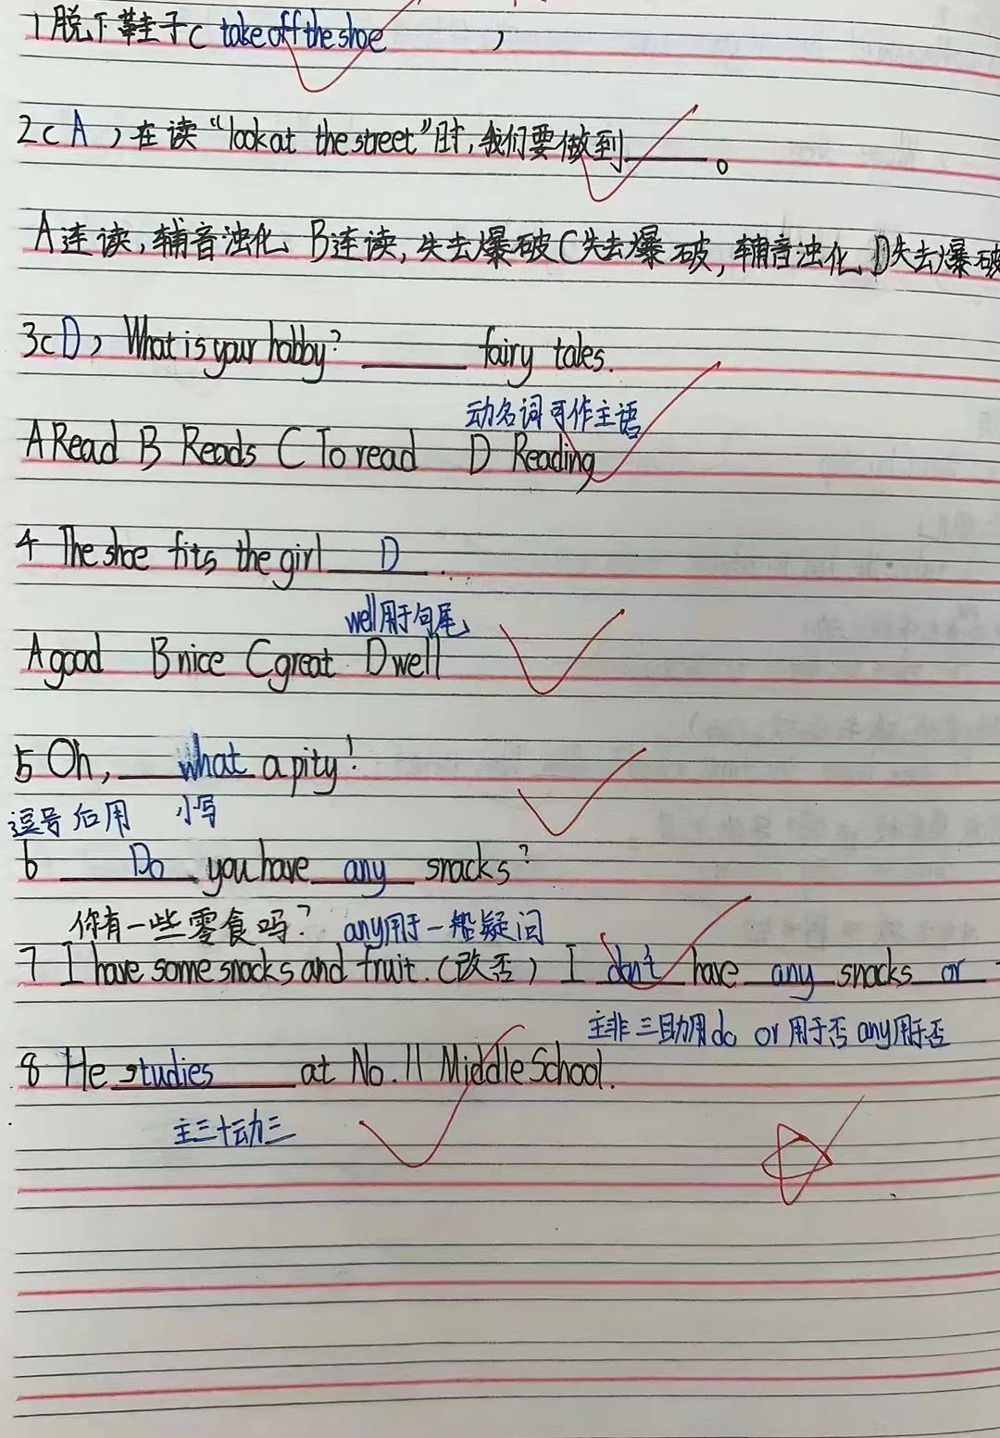 1脱下鞋子( take off the shoe )
2( A )在读“look at the street”时,我们要做到____。
A连读,辅音浊化 B连读,失去爆破 C失去爆破,辅音浊化 D失去爆破
3( D ) What is your hobby? ____ fairy tales.
动名词可作主语
A Read B Reads C To read D Reading
4 The shoe fits the girl D .
well用于句尾
A good B nice C great D well
5 Oh, what a pity!
逗号后用 小写
6 Do you have any snacks?
你有一些零食吗? any用于一般疑问
7 I have some snacks and fruit.(改否) I don't have any snacks or
主非三助用do or用于否 any用于否
8 He studies at No.11 Middle School.
主三十动三